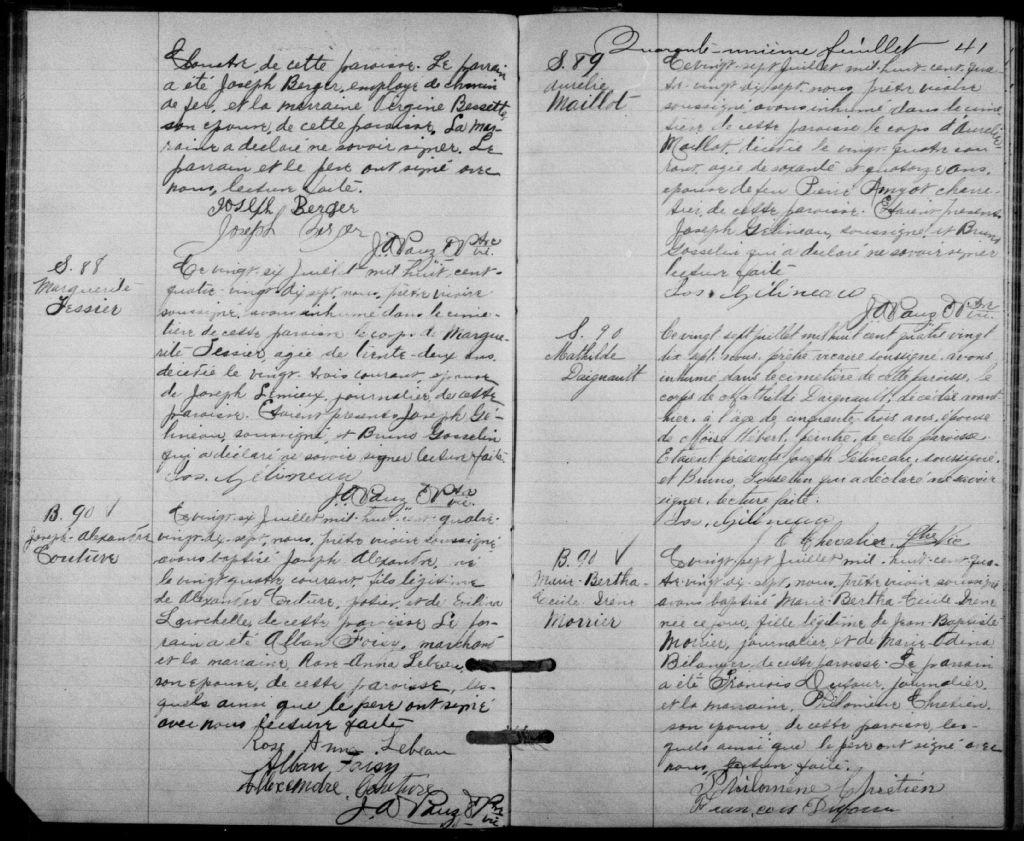 de cette paroisse. Le parrain
a été Joseph Berger, employé de chemin
de fer, et la marraine Bessette
son epouse, de cette paroisse. La mar-
raine a declaré ne savoir signer. Le
parrain et le pere ont signé avec
nous, lecture faite.
Joseph Berger
Joseph Berger
Ptre
vic.
S. 88
Marguerite
Tessier
Ce vingt-six Juillet mil huit-cent-
quatre-vingt-dix-sept, nous, prêtre vicaire
soussigné, avons inhumé dans le cime-
tière de cette paroisse le corps de Margue-
rite Tessier agée de trente-deux ans
décédée le vingt-trois courant, épouse
de Joseph Lemieux, journalier de cette
paroisse. Etaient presents, Joseph Gé-
lineau, soussigné, et Bruno Gosselin
qui a déclaré ne savoir signer lecture faite.
Jos. Gélineau
Ptre
vic.
B. 90 √
Joseph-Alexandre
Couture
Ce vingt-six Juillet mil-huit-cent-quatre-
vingt-dix-sept, nous, prêtre vicaire soussigné
avons baptisé Joseph Alexandre, né
le vingt-quatre courant, fils légitime
de Alexandre Couture, et de
Larochelle de cette paroisse. Le par-
rain a été Alban Foisy, marchand
et la marraine, Rose-Anna Lebeau,
son epouse, de cette paroisse, les-
quels ainsi que le pere ont signé
avec nous lecture faite
Rose Anna Lebeau
Alban Foisy
Alexendre Couture
Ptre
vic.
Quarante-unième feuillet 41
S. 89
Aurélie
Maillot
Ce vingt-sept Juillet mil-huit-cent-qua-
tre-vingt-dix-sept, nous, prêtre vicaire
soussigné avons inhumé dans le cime-
tière de cette paroisse le corps d'Aurélie
Maillot, décédée le vingt-quatre cou-
rant, agée de soixante et quatorze ans,
epouse de feu Pierre Amyot charre-
tier, de cette paroisse. Etaient presents
Joseph Gélineau, soussigné, et Bruno
Gosselin qui a déclaré ne savoir signer
lecture faite
Jos. Gélineau
Ptre
vic.
S. 90
Mathilde
Daignault
Ce vingt sept juillet mil huit cent quatre vingt
dix sept. nous, prêtre vicaire soussigné, avons
inhumé dans le cimetière de cette paroisse, le
corps de Mathilde Daignault, décédée avant-
hier, à l'âge de cinquante-trois ans, épouse
de Moïse Hébert, peintre, de cette paroisse.
Etaient présents Joseph Gélineau, soussigné,
et Bruno Gosselin qui a déclaré ne savoir
signer, lecture faite.
Jos. Gélineau
E Chevalier, Ptre Vic
B. 90 √
Marie-Bertha-
Cécile Irène
Morrier
Ce vingt-sept Juillet, mil-huit-cent-qua-
tre-vingt-dix-sept, nous, prêtre vicaire soussigné
avons baptisé Marie-Bertha Cécile Irène
née ce jour, fille légitime de Jean-Baptiste
Morrier, journalier et de Marie-Edina
Bélanger, de cette paroisse. Le parrain
a été Francois Dufour, journalier,
et la marraine, Philomène Chretien,
son epouse, de cette paroisse, les-
quels ainsi que le père ont signé avec
nous, lecture faite.
Philomène Chrétien
François Dufour